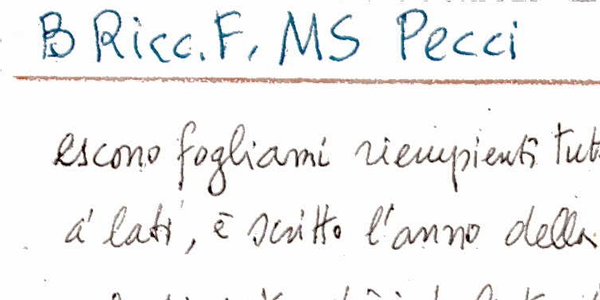 B Ricc. F, MS Pecci
escono fogliami riempienti tut
a' lati, è scritto l'anno della